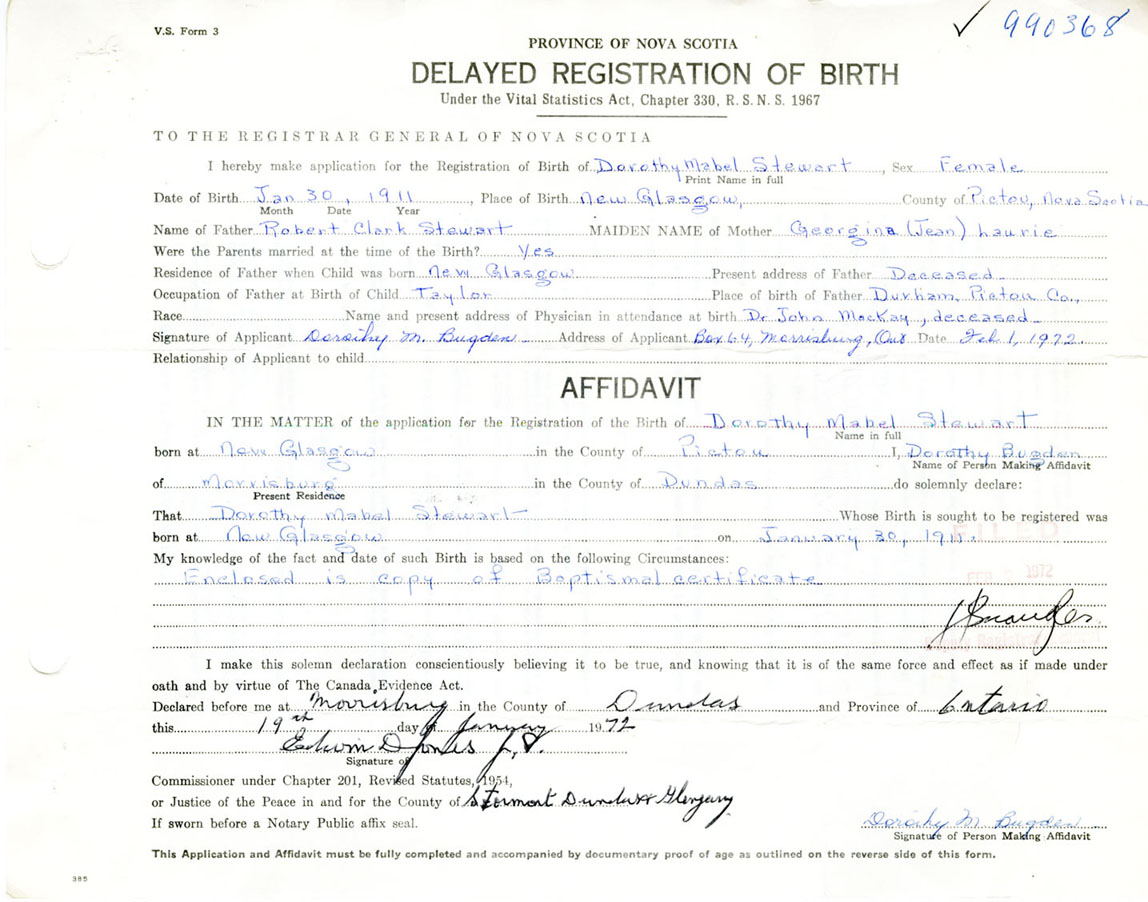 V.S. Form 3
✓ 990368
PROVINCE OF NOVA SCOTIA
DELAYED REGISTRATION OF BIRTH
Under the Vital Statistics Act, Chapter 330, R. S. N. S. 1967
TO THE REGISTRAR GENERAL OF NOVA SCOTIA
I hereby make application for the Registration of Birth of Dorothy Mabel Stewart, Sex Female
Print Name in full
Date of Birth Jan 30, 1911, Place of Birth New Glasgow, County of Pictou, Nova Scotia
Month Date Year
Name of Father Robert Clark Stewart MAIDEN NAME of Mother Georgina (Jean) Laurie
Were the Parents married at the time of the Birth? Yes
Residence of Father when Child was born New Glasgow Present address of Father Deceased
Occupation of Father at Birth of Child Taylor Place of birth of Father Durham, Pictou Co.,
Race Name and present address of Physician in attendance at birth Dr John MacKay, deceased
Signature of Applicant Dorothy M. Bugden Address of Applicant Box 64, Morrisburg, Ont Date Feb 1, 1972
Relationship of Applicant to child
AFFIDAVIT
IN THE MATTER of the application for the Registration of the Birth of Dorothy Mabel Stewart
Name in full
born at New Glasgow in the County of Pictou I, Dorothy Bugden
Name of Person Making Affidavit
of Morrisburg in the County of Dundas do solemnly declare:
Present Residence
That Dorothy Mabel Stewart Whose Birth is sought to be registered was
born at New Glasgow on January 30, 1911.
FILED
My knowledge of the fact and date of such Birth is based on the following Circumstances:
Enclosed is copy of Baptismal certificate
FEB 1972
Deputy Registrar
I make this solemn declaration conscientiously believing it to be true, and knowing that it is of the same force and effect as if made under
oath and by virtue of The Canada Evidence Act.
Declared before me at Morrisburg in the County of Dundas and Province of Ontario
this 19th day of January 1972
Edwin D Jones J.P.
Signature of
Commissioner under Chapter 201, Revised Statutes, 1954,
or Justice of the Peace in and for the County of Stormont Dundas & Glengary
If sworn before a Notary Public affix seal.
Dorothy M Bugden
Signature of Person Making Affidavit
This Application and Affidavit must be fully completed and accompanied by documentary proof of age as outlined on the reverse side of this form.
385